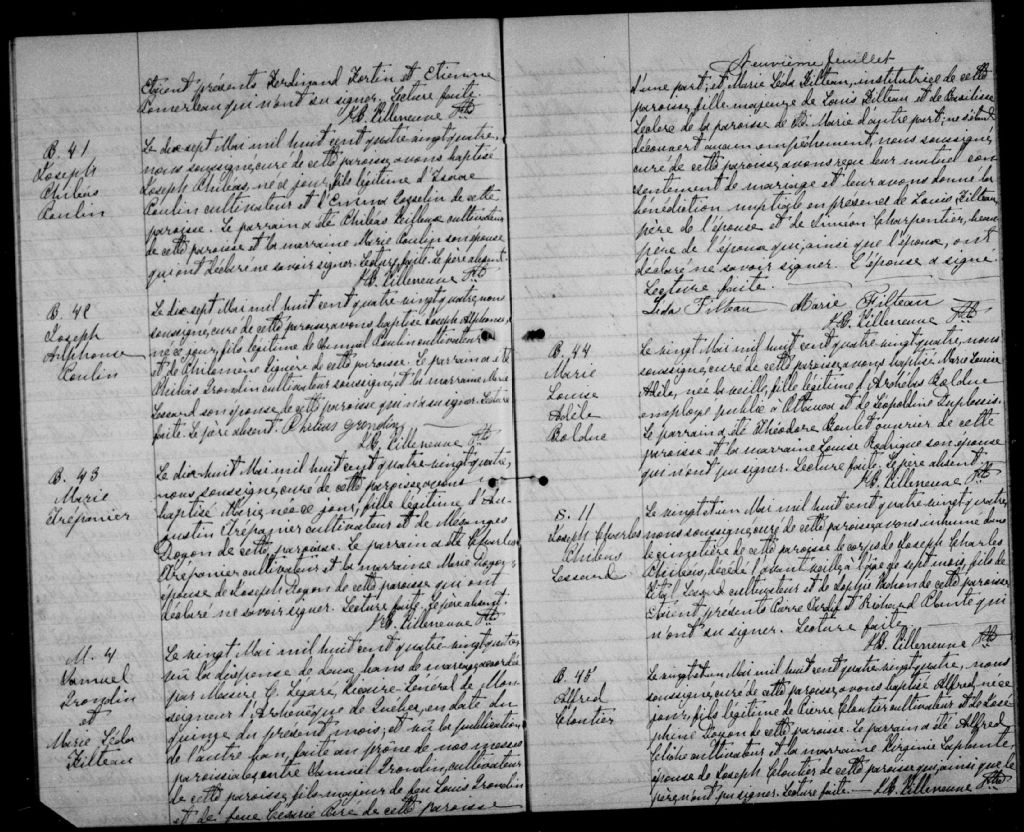 Etaient présents Ferdinand Fortin et Etienne
Pomerleau qui n'ont su signer. Lecture faite.
J.B. Villeneuve Ptre
B. 41
Joseph
Philéas
Poulin
Le dix sept Mai mil huit cent quatre-vingt quatre,
nous soussigné, curé de cette paroisse, avons baptisé
Joseph Philéas, né ce jour, fils légitime d'Isaac
Poulin cultivateur et d'Emma Gosselin de cette
paroisse. Le parrain a été Philéas cultivateur
de cette paroisse et la marraine Marie Poulin son épouse
qui ont déclaré ne savoir signer. Lecture faite. Le père absent.
J.B. Villeneuve Ptre
B. 42
Joseph
Alphonse
Poulin
Le dix sept Mai mil huit cent quatre-vingt quatre, nous
soussigné, curé de cette paroisse, avons baptisé Joseph Alphonse,
né ce jour, fils légitime de Poulin cultivateur
et de Philomène de cette paroisse. Le parrain a été
Philéas Grondin cultivateur soussigné, et la marraine Marie
Lessard son épouse de cette paroisse qui n'a su signer. Lecture
faite. Le père absent. Philias Grondin
J.B. Villeneuve Ptre
B. 43
Marie
Trépanier
Le dix-huit Mai mil huit cent quatre-vingt-quatre,
nous soussigné, curé de cette paroisse, avons
baptisé Marie, née ce jour, fille légitime d'Au-
gustin Trépanier cultivateur et de Mésanges
Doyon de cette paroisse. Le parrain a été Charles
Trépanier cultivateur et la marraine Marie Doyon
épouse de Joseph Doyon de cette paroisse qui ont
déclaré ne savoir signer. Lecture faite. Le père absent.
J.B. Villeneuve Ptre
M. 4
Samuel
Grondin
et
Marie Léda
Filteau
Le vingt Mai mil huit cent quatre-vingt-quatre,
vu la dispense de deux bans de mariage accordée
par Messire C. Légaré, Vicaire-Général de Mon-
seigneur l'Archevêque de Québec, en date du
quinze du présent mois; et vu la publication
de l'autre ban, faite au prône de nos messes
paroissiales entre Samuel Grondin, cultivateur
de cette paroisse, fils majeur de feu Louis Grondin
et de feue Césarie Paré de cette paroisse
Neuvième feuillet
d'une part; et Marie Léda Filteau, institutrice de cette
paroisse, fille majeure de Louis Filteau et de Basilisse
Leclerc de la paroisse de Ste. Marie d'autre part; ne s'étant
découvert aucun empêchement, nous soussigné,
curé de cette paroisse, avons reçu leur mutuel con-
sentement de mariage et leur avons donné la
bénédiction nuptiale en présence de Louis Filteau,
père de l'épouse et de Siméon Charpentier, beau-
père de l'époux qui, ainsi que l'époux, ont
déclaré ne savoir signer. L'épouse a signé.
Lecture faite.
Léda Filteau Marie Filteau
J.B. Villeneuve Ptre
B. 44
Marie
Louise
Adèle
Bolduc
Le vingt Mai mil huit cent quatre-vingt quatre, nous
soussigné, curé de cette paroisse, avons baptisé Marie Louise
Adèle, née la veille, fille légitime d'Archelas Bolduc
employé public à Ottawa et de Léopoldine Duplessis.
Le parrain a été Théodore Roulet ouvrier de cette
paroisse et la marraine Louise Rodrigue son épouse
qui n'ont pu signer. Lecture faite. Le père absent.
J.B. Villeneuve Ptre
S. 11
Joseph Charles
Philéas
Lessard
Le vingt et un Mai mil huit cent quatre-vingt quatre,
nous soussigné, curé de cette paroisse, avons inhumé dans
le cimetière de cette paroisse le corps de Joseph Charles
Philéas, décédé l'avant veille à l'âge de sept mois, fils de
Lessard cultivateur et de Sophie Vachon de cette paroisse.
Etaient présents Pierre et Richard Plante qui
n'ont su signer. Lecture faite.
J.B. Villeneuve Ptre
B. 45
Alfred
Cloutier
Le vingt et un Mai mil huit cent quatre-vingt quatre, nous
soussigné, curé de cette paroisse, avons baptisé Alfred, né ce
jour, fils légitime de Pierre Cloutier cultivateur et de José-
phine Doyon de cette paroisse. Le parrain a été Alfred
cultivateur et la marraine Virginie Laplante,
épouse de Joseph Cloutier de cette paroisse qui, ainsi que le
père, n'ont pu signer. Lecture faite. J.B. Villeneuve Ptre